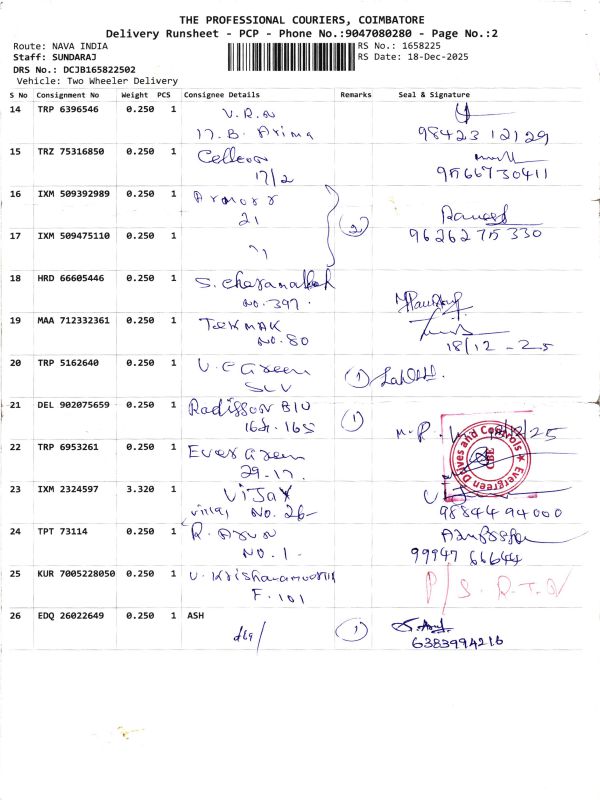 THE PROFESSIONAL COURIERS, COIMBATORE
Delivery Runsheet - PCP - Phone No.:9047080280 - Page No.:2
Route: NAVA INDIA
RS No.: 1658225
Staff: SUNDARAJ
RS Date: 18-Dec-2025
DRS No.: DCJB165822502
Vehicle: Two Wheeler Delivery
S No Consignment No Weight PCS Consignee Details Remarks Seal & Signature
14 TRP 6396546 0.250 1 V.R.N
17.B. Arima
98423 12129
15 TRZ 75316850 0.250 1
17/2
95667 30411
16 IXM 509392989 0.250 1
21
2
96262 75330
17 IXM 509475110 0.250 1
18 HRD 66605446 0.250 1
NO.397.
19 MAA 712332361 0.250 1
NO.80
18/12-25
20 TRP 5162640 0.250 1 V.C Green
1
21 DEL 902075659 0.250 1 Radisson BIU
164.165
1
M.P.
/12/25
22 TRP 6953261 0.250 1 Ever Green
29.17.
Evergreen Drives and Controls
CBE
23 IXM 2324597 3.320 1 VIJAY
NO.26
98844 94000
24 TPT 73114 0.250 1 R. Arun
NO.1.
99947 66644
25 KUR 7005228050 0.250 1
F.101
P/S. R.T.O
26 EDQ 26022649 0.250 1 ASH
1
6383994216